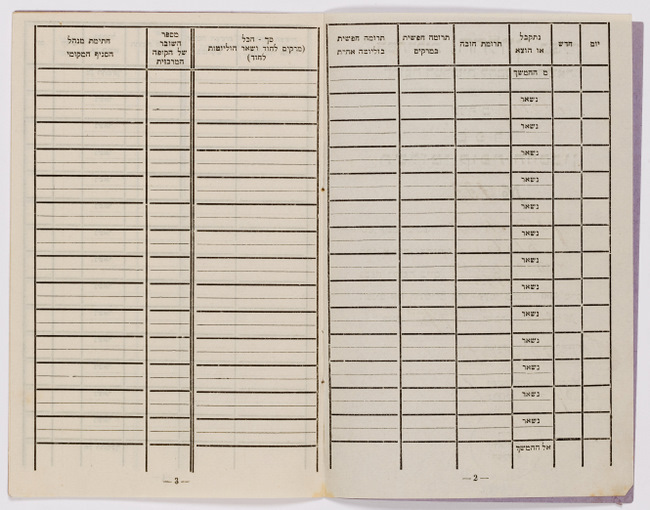 יום
חדש
נתקבל
או הוצא
תרומת חובה
תרומה חפשית
במרקים
תרומה חפשית
בוליוטה אחרת
סך - הכל
(מרקים לחוד ושאר הוליוטות
לחוד)
מספר
השובר
של הקופה
המרכזית
חתימת מנהל
הסניף המקומי
מ ההמשך
נשאר
נשאר
נשאר
נשאר
נשאר
נשאר
נשאר
נשאר
נשאר
נשאר
נשאר
נשאר
נשאר
אל ההמשך
— 2 —
— 3 —